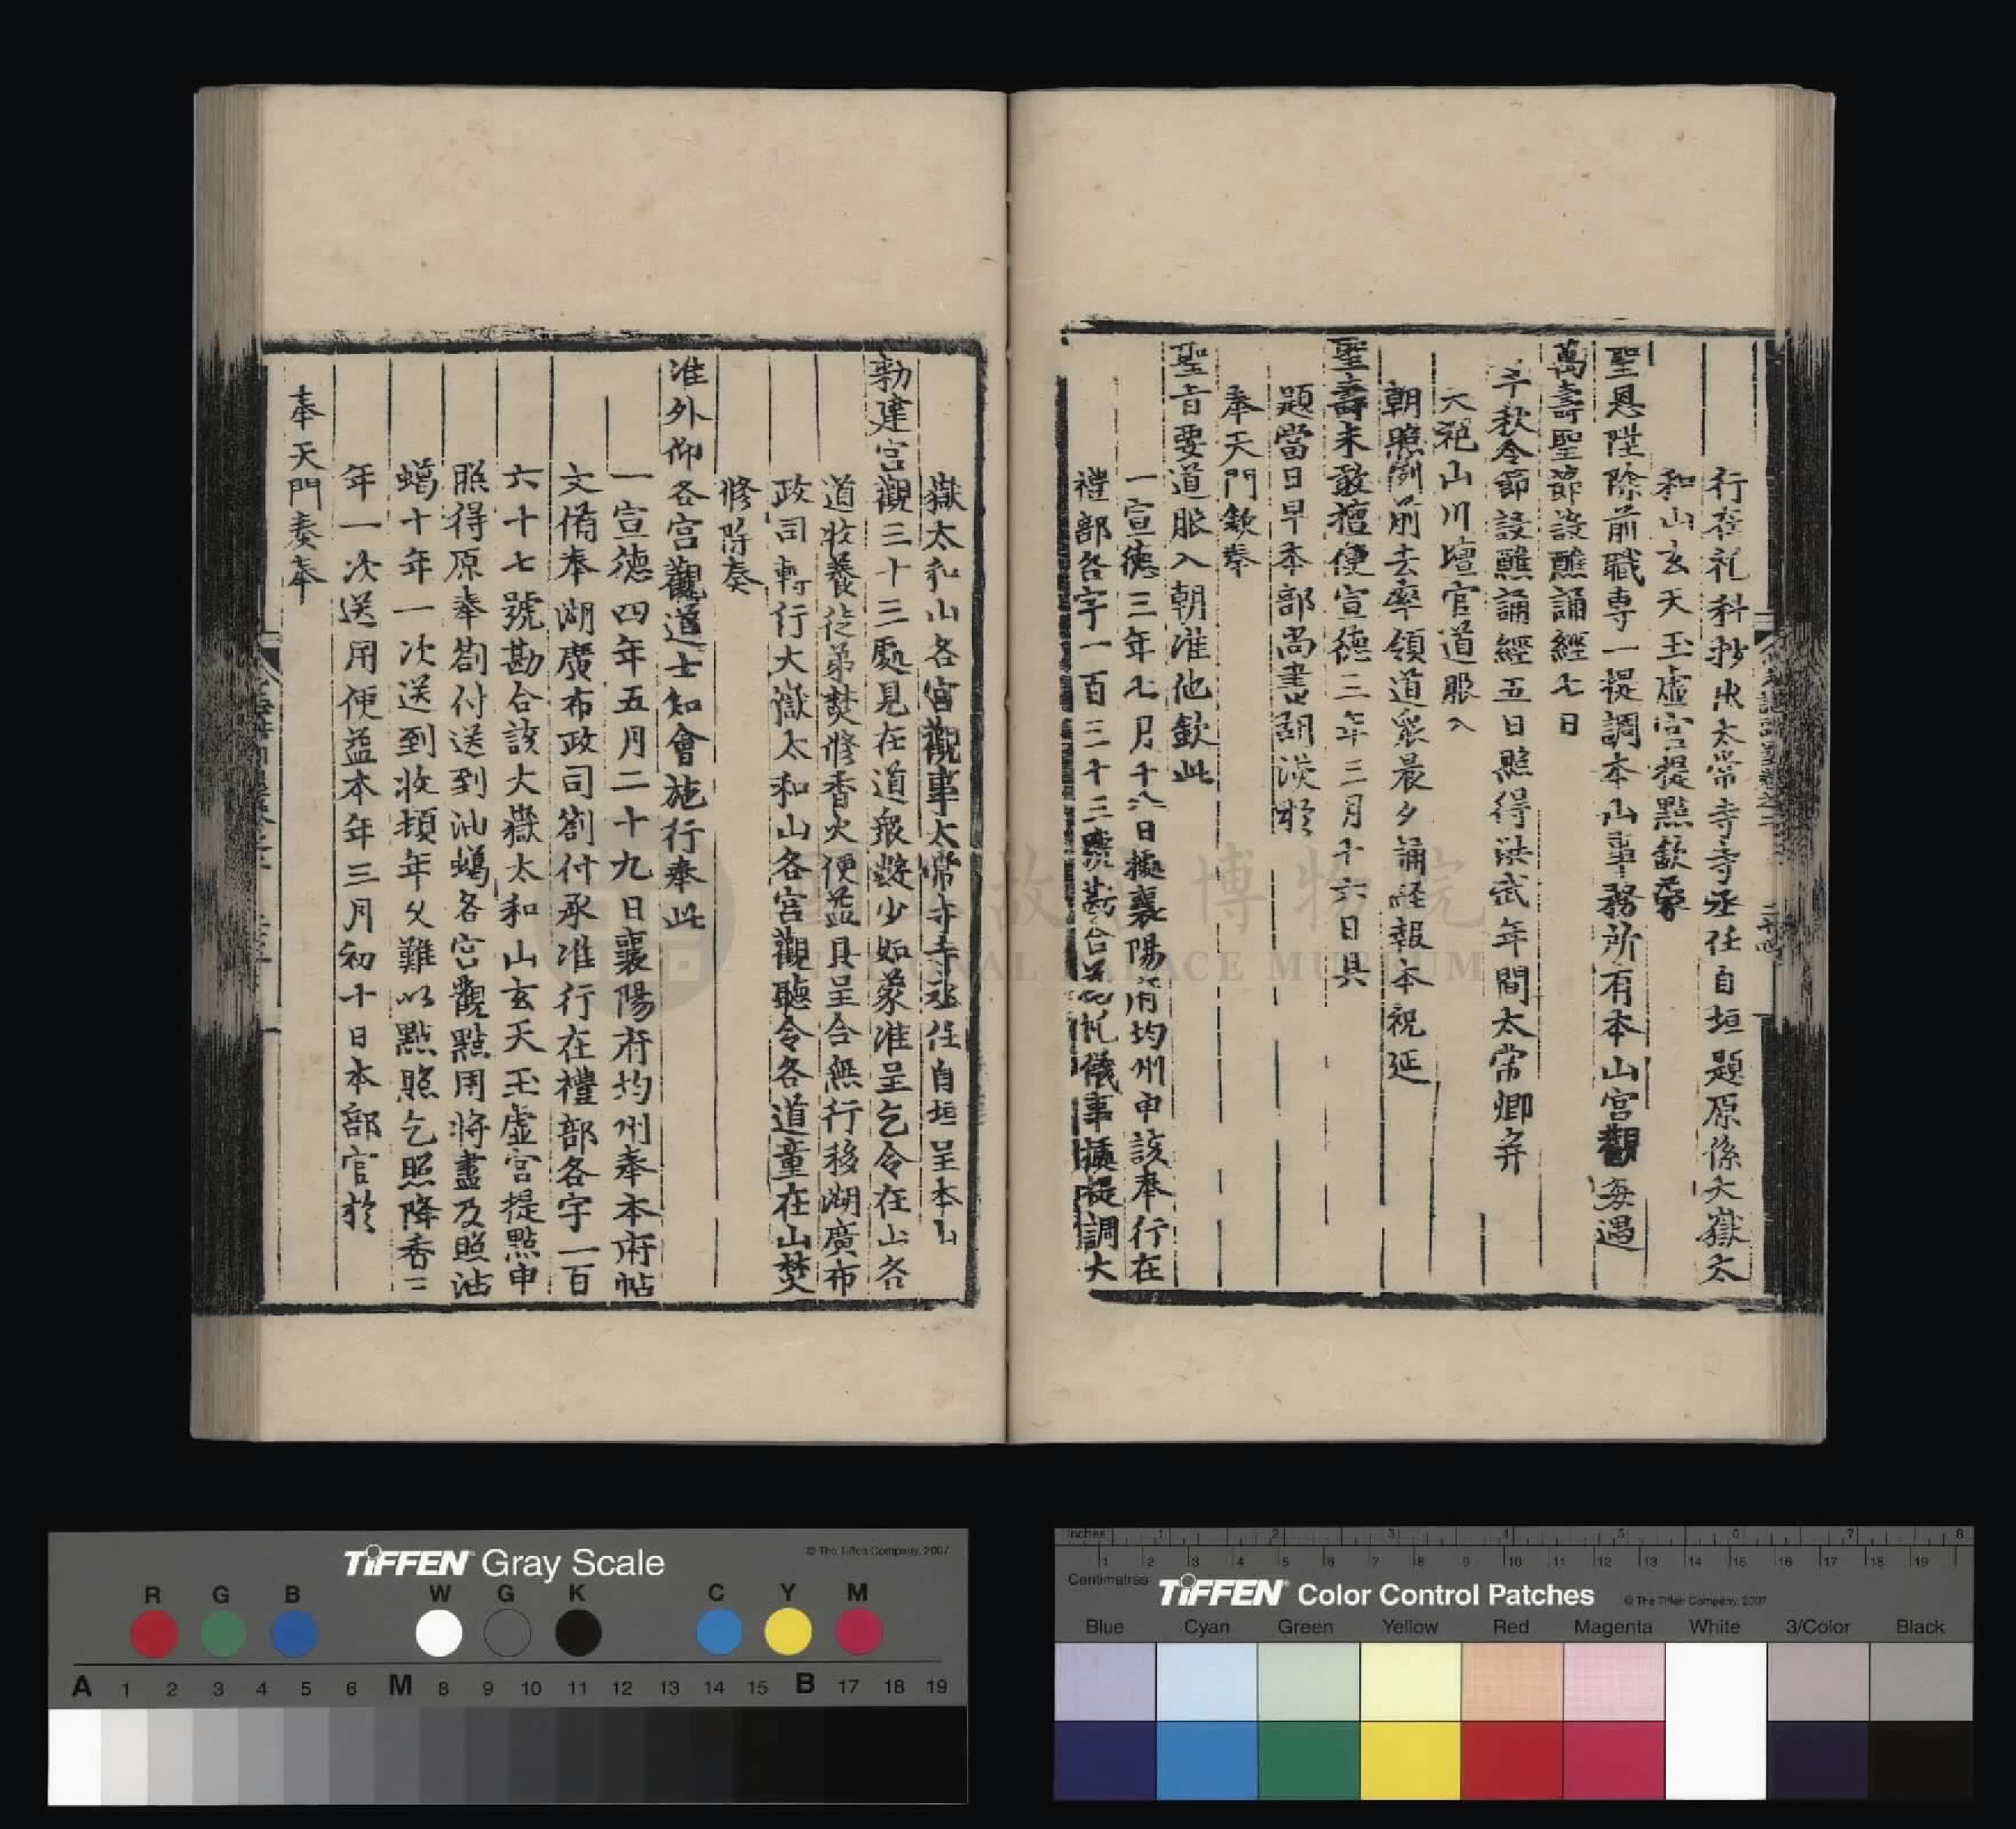 行在礼科抄出太常寺寺丞任自垣題原係大嶽太
和山玄天玉虛宮提點欽蒙
聖恩陞除前職專一提調本山事務所有本山宮觀每遇
萬壽聖節設醮誦經七日
千秋令節設醮誦經五日照得洪武年間太常卿并
大祀山川壇官道服入
朝照例前去率領道衆晨夕誦經報本祝延
聖壽未敢擅便宣德三年三月十六日具
題當日早本部尚書胡濙於
奉天門欽奉
聖旨要道服入朝准他欽此
一宣德三年七月十八日據襄陽府均州申該奉行在
禮部各字一百三十三號勘合為礼儀事據提調大
嶽太和山各宮觀事太常寺寺丞任自垣呈本山
勑建宮觀三十三處見在道衆數少如蒙准呈乞令在山各
道收養徒弟焚修香火便益具呈合無行移湖廣布
政司轉行大嶽太和山各宮觀聽令各道童在山焚
修除奏
准外仰各宮觀道士知會施行奉此
一宣德四年五月二十九日襄陽府均州奉本府帖
文備奉湖廣布政司劄付承准行在禮部各字一百
六十七號勘合該大嶽太和山玄天玉虛宮提點申
照得原奉劄付送到油蠟各宮觀點用將盡及照沾
蠟十年一次送到收頓年久難以點照乞照降香三
年一次送用便益本年三月初十日本部官於
奉天門奏奉
國立故宮博物院
NATIONAL PALACE MUSEUM
TIFFEN Gray Scale
© The Tiffen Company, 2007
R G B W G K C Y M
A 1 2 3 4 5 6 M 8 9 10 11 12 13 14 15 B 17 18 19
Inches 1 2 3 4 5 6 7 8
1 2 3 4 5 6 7 8 9 10 11 12 13 14 15 16 17 18 19
Centimetres
TIFFEN Color Control Patches
© The Tiffen Company, 2007
Blue Cyan Green Yellow Red Magenta White 3/Color Black